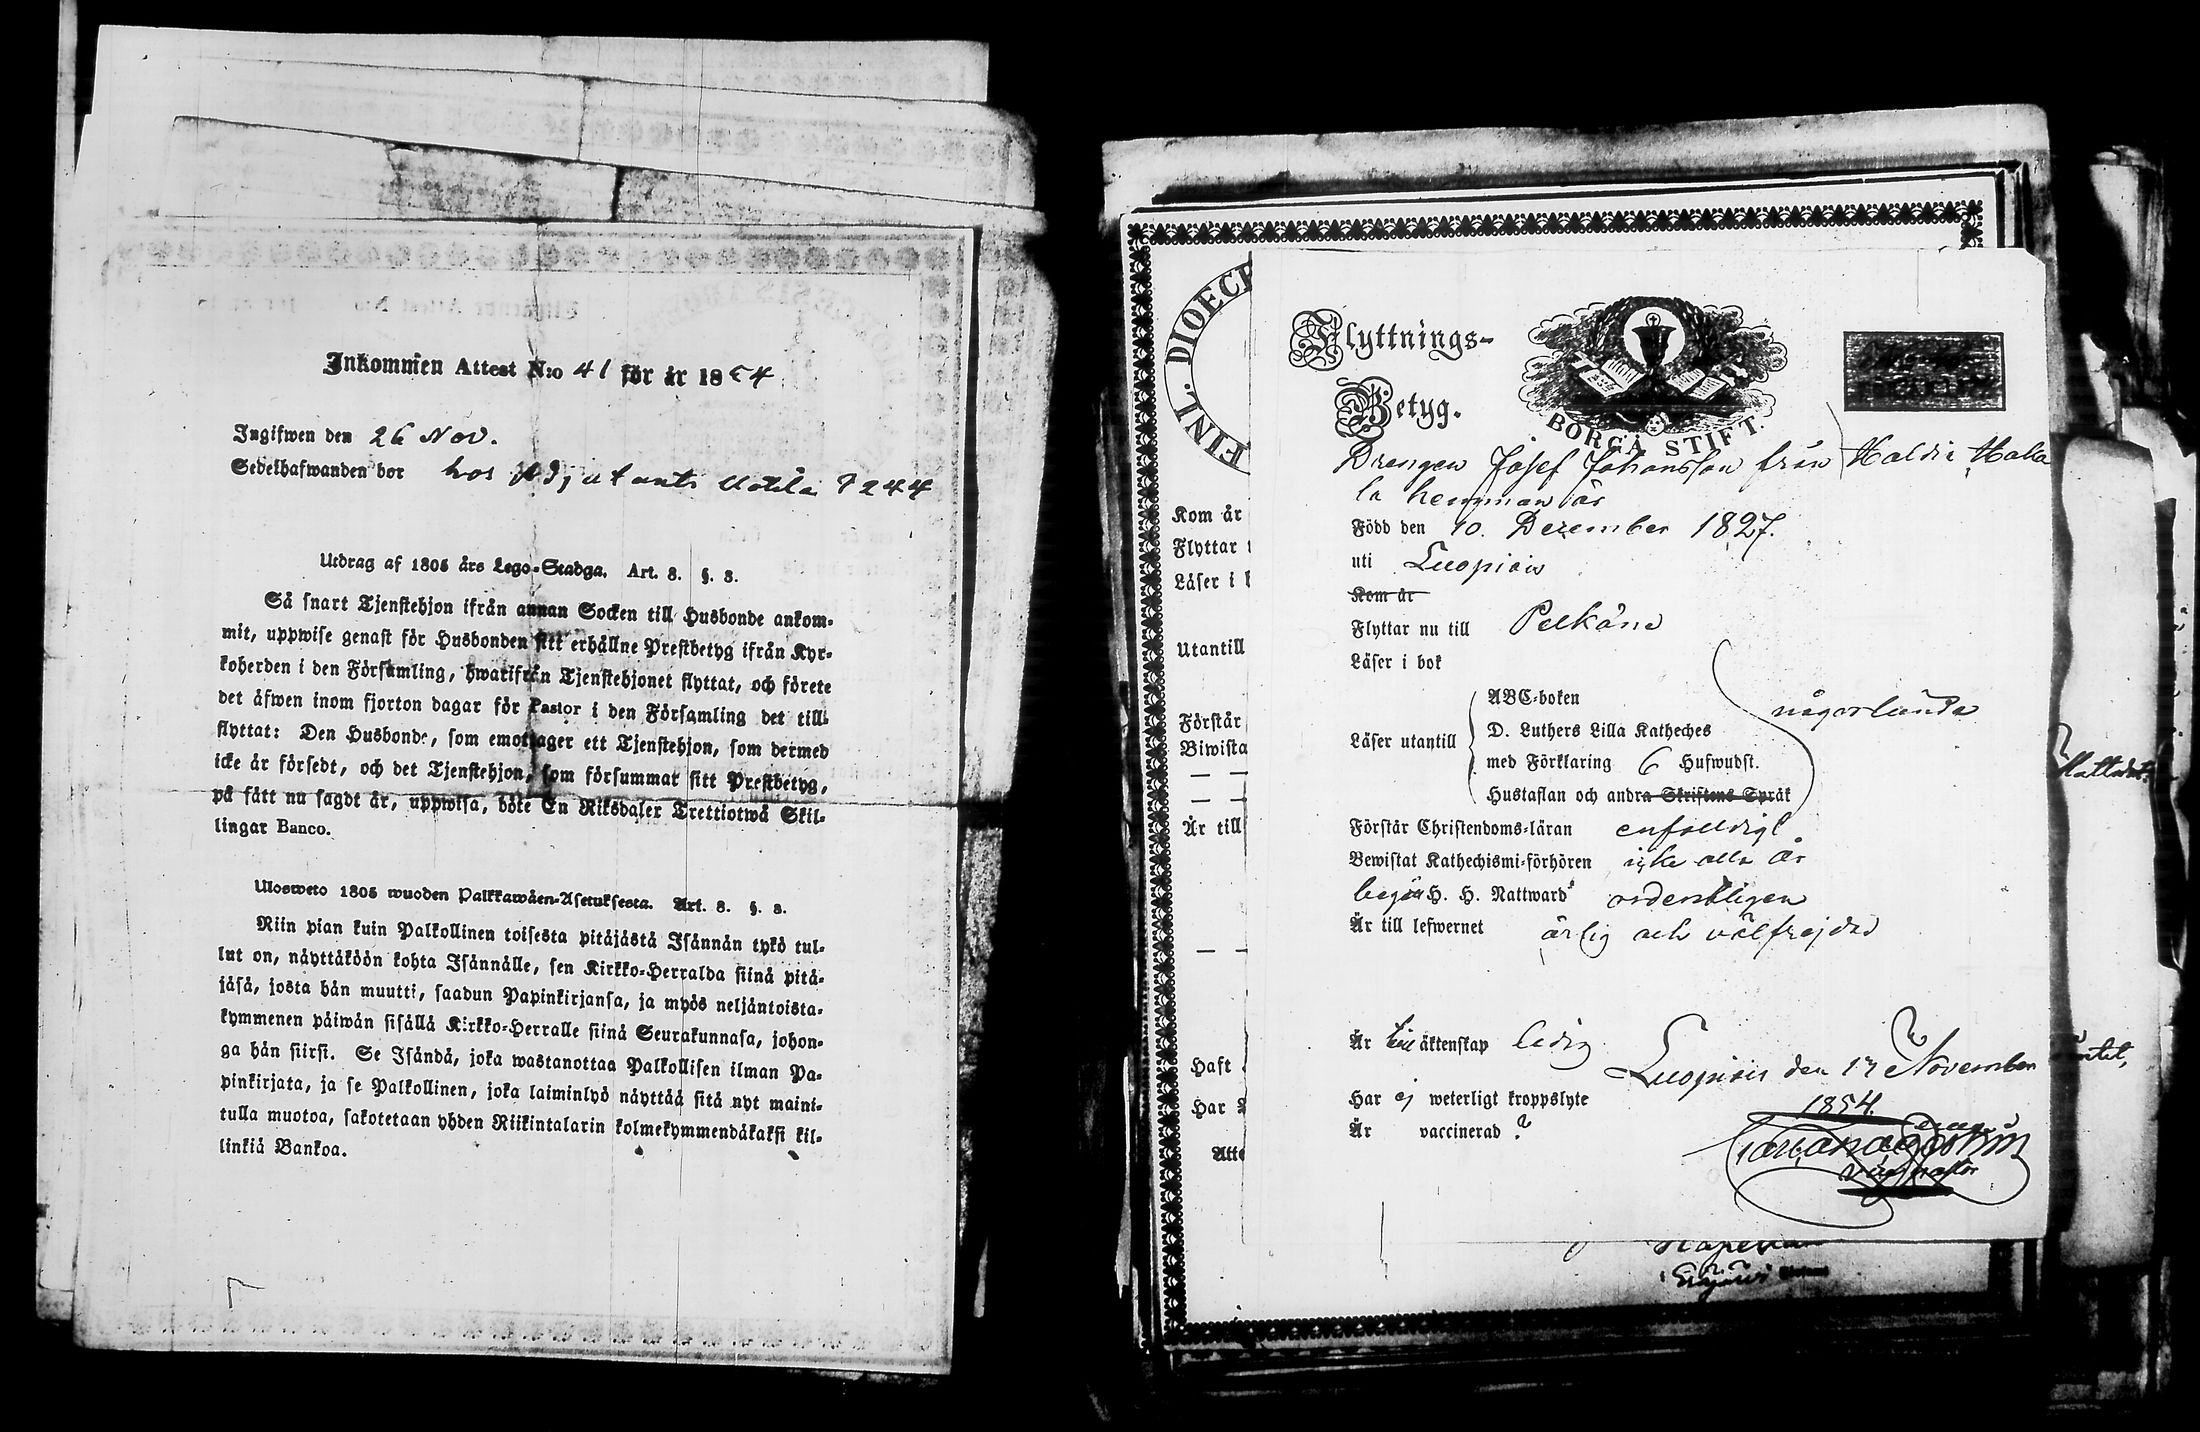 Inkommen Attest N:o 41 för år 1854
Ingifwen den 26 Nov.
Sedelhafwanden bor hos Adjutants Uotila P 244
Utdrag af 1805 års Lego-Stadga. Art. 8. §. 3.
Så snart Tjenstehjon ifrån annan Socken till Husbonde ankom-
mit, uppwise genast för Husbonden sitt erhållne Prestbetyg ifrån Kyr-
koherden i den Församling, hwarifrån Tjenstehjonet flyttat, och förete
det äfwen inom fjorton dagar för Pastor i den Församling det till-
flyttat: Den Husbonde, som emottager ett Tjenstehjon, som dermed
icke är försedt, och det Tjenstehjon, som försummar sitt Prestbetyg,
på sätt nu sagdt är, uppwisa, böte En Riksdaler Trettiotwå Skil-
lingar Banco.
Ulosweto 1805 wuoden Palkkawäen-Asetuksesta. Art. 8. §. 3.
Niin pian kuin Palkollinen toisesta pitäjästä Isännän tykö tul-
lut on, näyttäköön kohta Isännälle, sen Kirkko-Herralda siinä pitä-
jäsä, josta hän muutti, saadun Papinkirjansa, ja myös neljäntoista-
kymmenen päiwän sisällä Kirkko-Herralle siinä Seurakunnasa, johon-
ga hän siirsi. Se Isändä, joka wastanottaa Palkollisen ilman Pa-
pinkirjata, ja se Palkollinen, joka laiminlyö näyttää sitä nyt maini-
tulla muotoa, sakotetaan yhden Riikintalarin kolmekymmendäkaksi kil-
linkiä Bankoa.
FINL. DIOECE
Kom år
Flyttar
Läser i b
Utantill
Förstår
Biwista
Är till
Haft
Har
Atte
Flyttnings-
Betyg.
BORGÅ STIFT.
Drengen Josef Johansson från Haldia Haka
la hemman är
Född den 10. Dezember 1827.
uti Luopiois
Kom år
Flyttar nu till Pelkäne
Läser i bok
Läser utantill
ABC-boken
D. Luthers Lilla Katheches
med Förklaring 6 Hufwudst.
Hustaflan och andra Skriftens Språk
någorlunda
Förstår Christendoms-läran enfaldigt
Bewistat Kathechismi-förhören icke alla år
begått H. H. Nattward ordentligen
Är till lefwernet ärlig och välfrejdad
Är till äktenskap ledig
Luopiois den 17 November
1854.
Har ej weterligt kroppslyte
Är vaccinerad ?
vice pastor